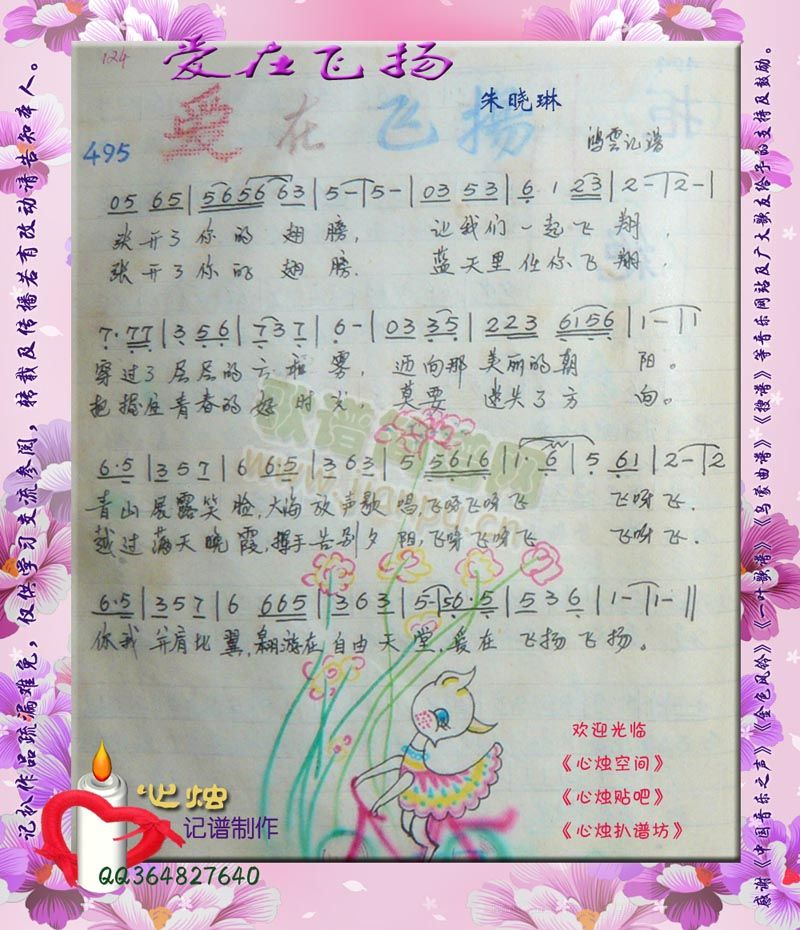 124
爱在飞扬
爱在飞扬
朱晓琳
鸿雲记谱
495
05 65 | 565663 | 5 - | 5 - | 03 53 | 6 1 23 | 2 - | 2 - |
张开了你的翅膀, 让我们一起飞翔,
张开了你的翅膀. 蓝天里任你飞翔.
7·77 | 3 56 | 737 | 6 - | 03 35 | 223 6156 | 1 - | 1
穿过了层层的云和雾, 迈向那美丽的朝阳。
把握住青春的好时光, 莫要迷失了方向。
6·5 | 357 | 6 6·5 | 363 | 5 5616 | 1· 6 | 5 61 | 2 - | 2
青山展露笑脸,大海放声歌唱,飞呀飞呀飞 飞呀飞.
越过满天晚霞,握手告别夕阳,飞呀飞呀飞 飞呀飞.
6·5 | 357 | 6 665 | 363 | 5 - | 56·5 | 536 | 1 - | 1 - ||
你我并肩比翼,翱游在自由天堂,爱在飞扬飞扬。
歌谱简谱网
www.jianpu.cn
欢迎光临
《心烛空间》
《心烛贴吧》
《心烛扒谱坊》
心烛
记谱制作
QQ364827640
记扒作品疏漏难免，仅供学习交流参阅，转载及传播若有改动请告知本人。
感谢《中国音乐之声》《金色风铃》《一叶歌谱》《乌蒙曲谱》《搜谱》等音乐网站及广大歌友给予的支持及鼓励。